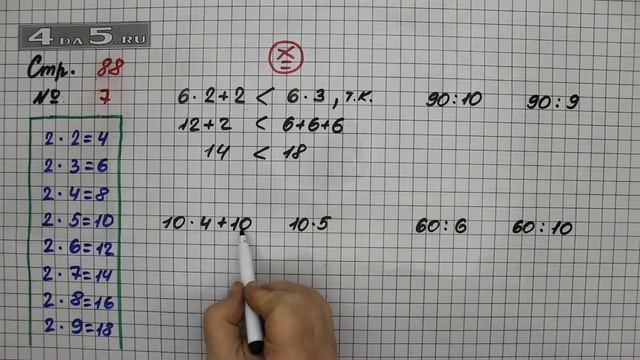 4 DA 5.RU
Стр. 88
№ 7
2·2=4
2·3=6
2·4=8
2·5=10
2·6=12
2·7=14
2·8=16
2·9=18
6·2+2 < 6·3, т.к.
12+2 < 6+6+6
14 < 18
90:10 90:9
10·4+10 10·5
60:6 60:10